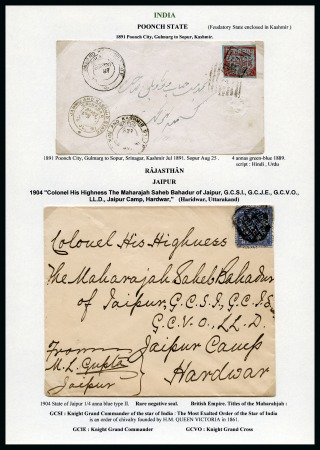 INDIA
POONCH STATE (Feudatory State enclosed in Kashmir)
1891 Poonch City, Gulmarg to Sopur, Kashmir.
1891 Poonch City, Gulmarg to Sopur, Srinagar, Kashmir Jul 1891. Sopur Aug 25 . 4 annas green-blue 1889.
script : Hindi , Urdu
RÂJASTHÂN
JAIPUR
1904 "Colonel His Highness The Maharajah Saheb Bahadur of Jaipur, G.C.S.I., G.C.J.E., G.C.V.O.,
LL.D., Jaipur Camp, Hardwar," (Haridwar, Uttarakand)
Colonel His Highness
The Maharajah Saheb Bahadur
of Jaipur, G.C.S.I., G.C.I.E.
G.C.V.O., LL.D.
From Jaipur Camp
M.L. Gupta
Jaipur Hardwar
1904 State of Jaipur 1/4 anna blue type II. Rare negative seal. British Empire, Titles of the Maharahjah :
GCSI : Knight Grand Commander of the star of India : The Most Exalted Order of the Star of India
is an order of chivalry founded by H.M. QUEEN VICTORIA in 1861.
GCIE : Knight Grand Commander GCVO : Knight Grand Cross